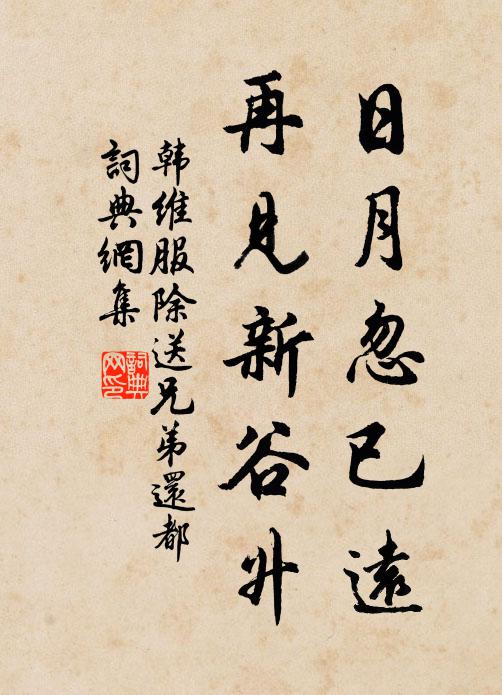 日月忽已遠
再見新谷升
韩维服除送兄弟還都
詞典網集
詞典网印